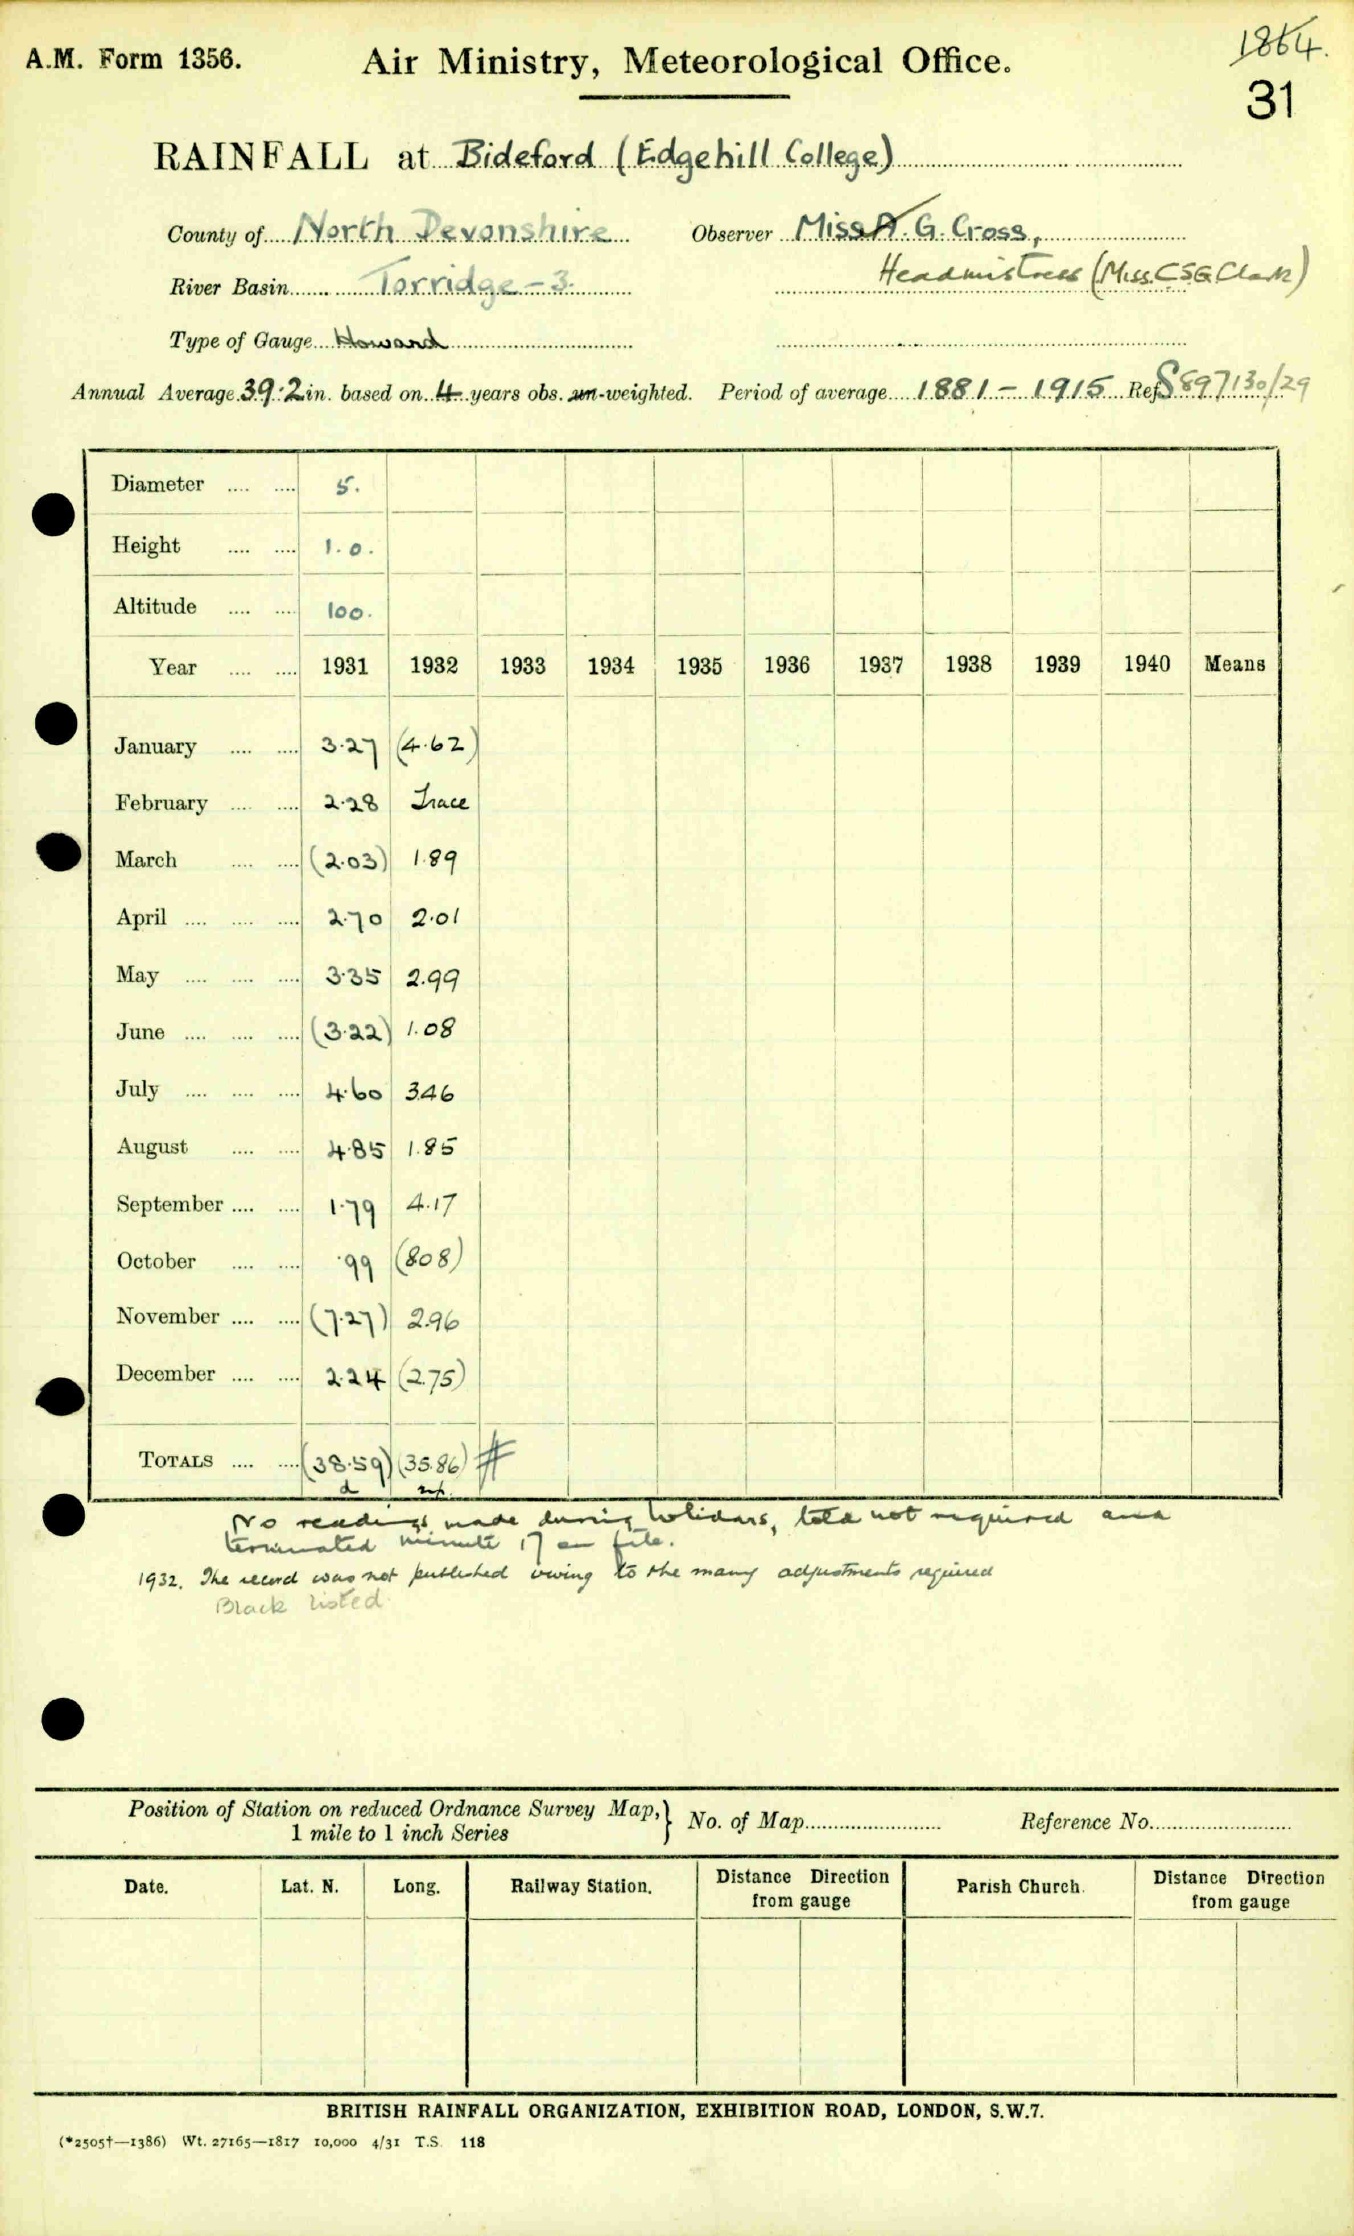 A.M. Form 1356.
Air Ministry, Meteorological Office.
1864.
31
RAINFALL at Bideford (Edgehill College)
County of North Devonshire Observer Miss A. G. Cross,
River Basin Torridge-3. Headmistress (Miss. C.S.G. Clark)
Type of Gauge Howard
Annual Average 39.2 in. based on 4 years obs. un-weighted. Period of average 1881-1915 Ref S897130/29
Diameter 5.
Height 1.0.
Altitude 100.
Year 1931 1932 1933 1934 1935 1936 1937 1938 1939 1940 Means
January 3.27 (4.62)
February 2.28 Trace
March (2.03) 1.89
April 2.70 2.01
May 3.35 2.99
June (3.22) 1.08
July 4.60 3.46
August 4.85 1.85
September 1.79 4.17
October .99 (8.08)
November (7.27) 2.96
December 2.24 (2.75)
TOTALS (38.59) (35.86)
d n.p.
No readings made during holidays, told not required and
terminated minute 17 on file.
1932. The record was not published owing to the many adjustments required
Black listed
Position of Station on reduced Ordnance Survey Map, } No. of Map Reference No.
1 mile to 1 inch Series
Date. Lat. N. Long. Railway Station. Distance Direction from gauge Parish Church. Distance Direction from gauge
BRITISH RAINFALL ORGANIZATION, EXHIBITION ROAD, LONDON, S.W.7.
(*2505†—1386) Wt. 27165—1817 10,000 4/31 T.S. 118